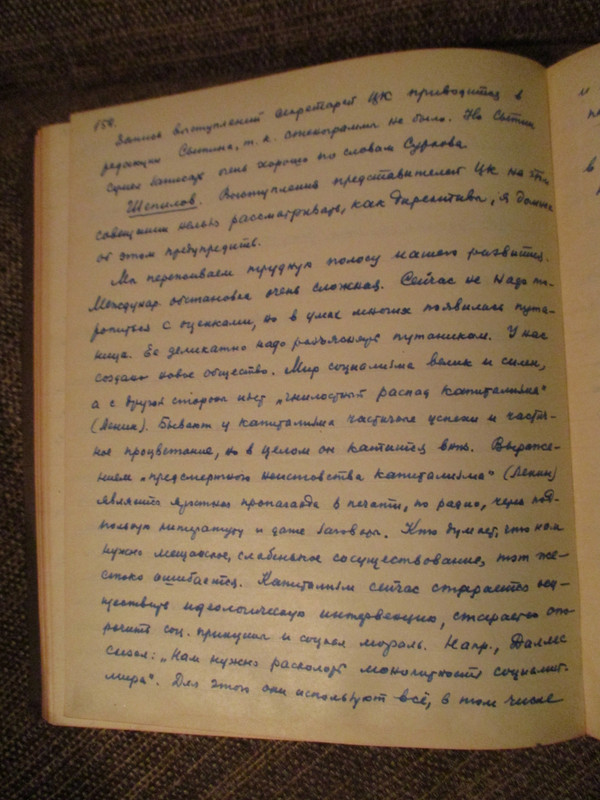 158.
Запись выступлений секретарей ЦК приводится в
редакции Свитина, т.к. стенограммы не было. Но Свитин
сумел записать очень хорошо по словам Суркова.
Шепилов. Выступления представителей ЦК на этом
совещании нельзя рассматривать, как директивы, я должен
об этом предупредить.
Мы переживаем трудную полосу нашего развития.
Междунар. обстановка очень сложная. Сейчас не надо то-
ропиться с оценками, но в умах многих появилась пута-
ница. Ее деликатно надо разъяснять путаникам. У нас
создано новое общество. Мир социализма велик и силен,
а с другой стороны идет „гнилостный распад капитализма"
(Ленин). Бывают у капитализма частичные успехи и частич-
ное процветание, но в целом он катится вниз. Выраже-
нием „предсмертного неистовства капитализма" (Ленин)
является яростная пропаганда в печати, по радио, через под-
польную литературу и даже заговоры. Кто думает, что нам
нужно мещанское, слабенькое сосуществование, тот же-
стоко ошибается. Капитализм сейчас старается осу-
ществить идеологическую интервенцию, старается опо-
рочить соц. принципы и социал мораль. Напр., Даллес
сказал: „Нам нужно расколоть монолитность социалист.
мира". Для этого они используют всё, в том числе